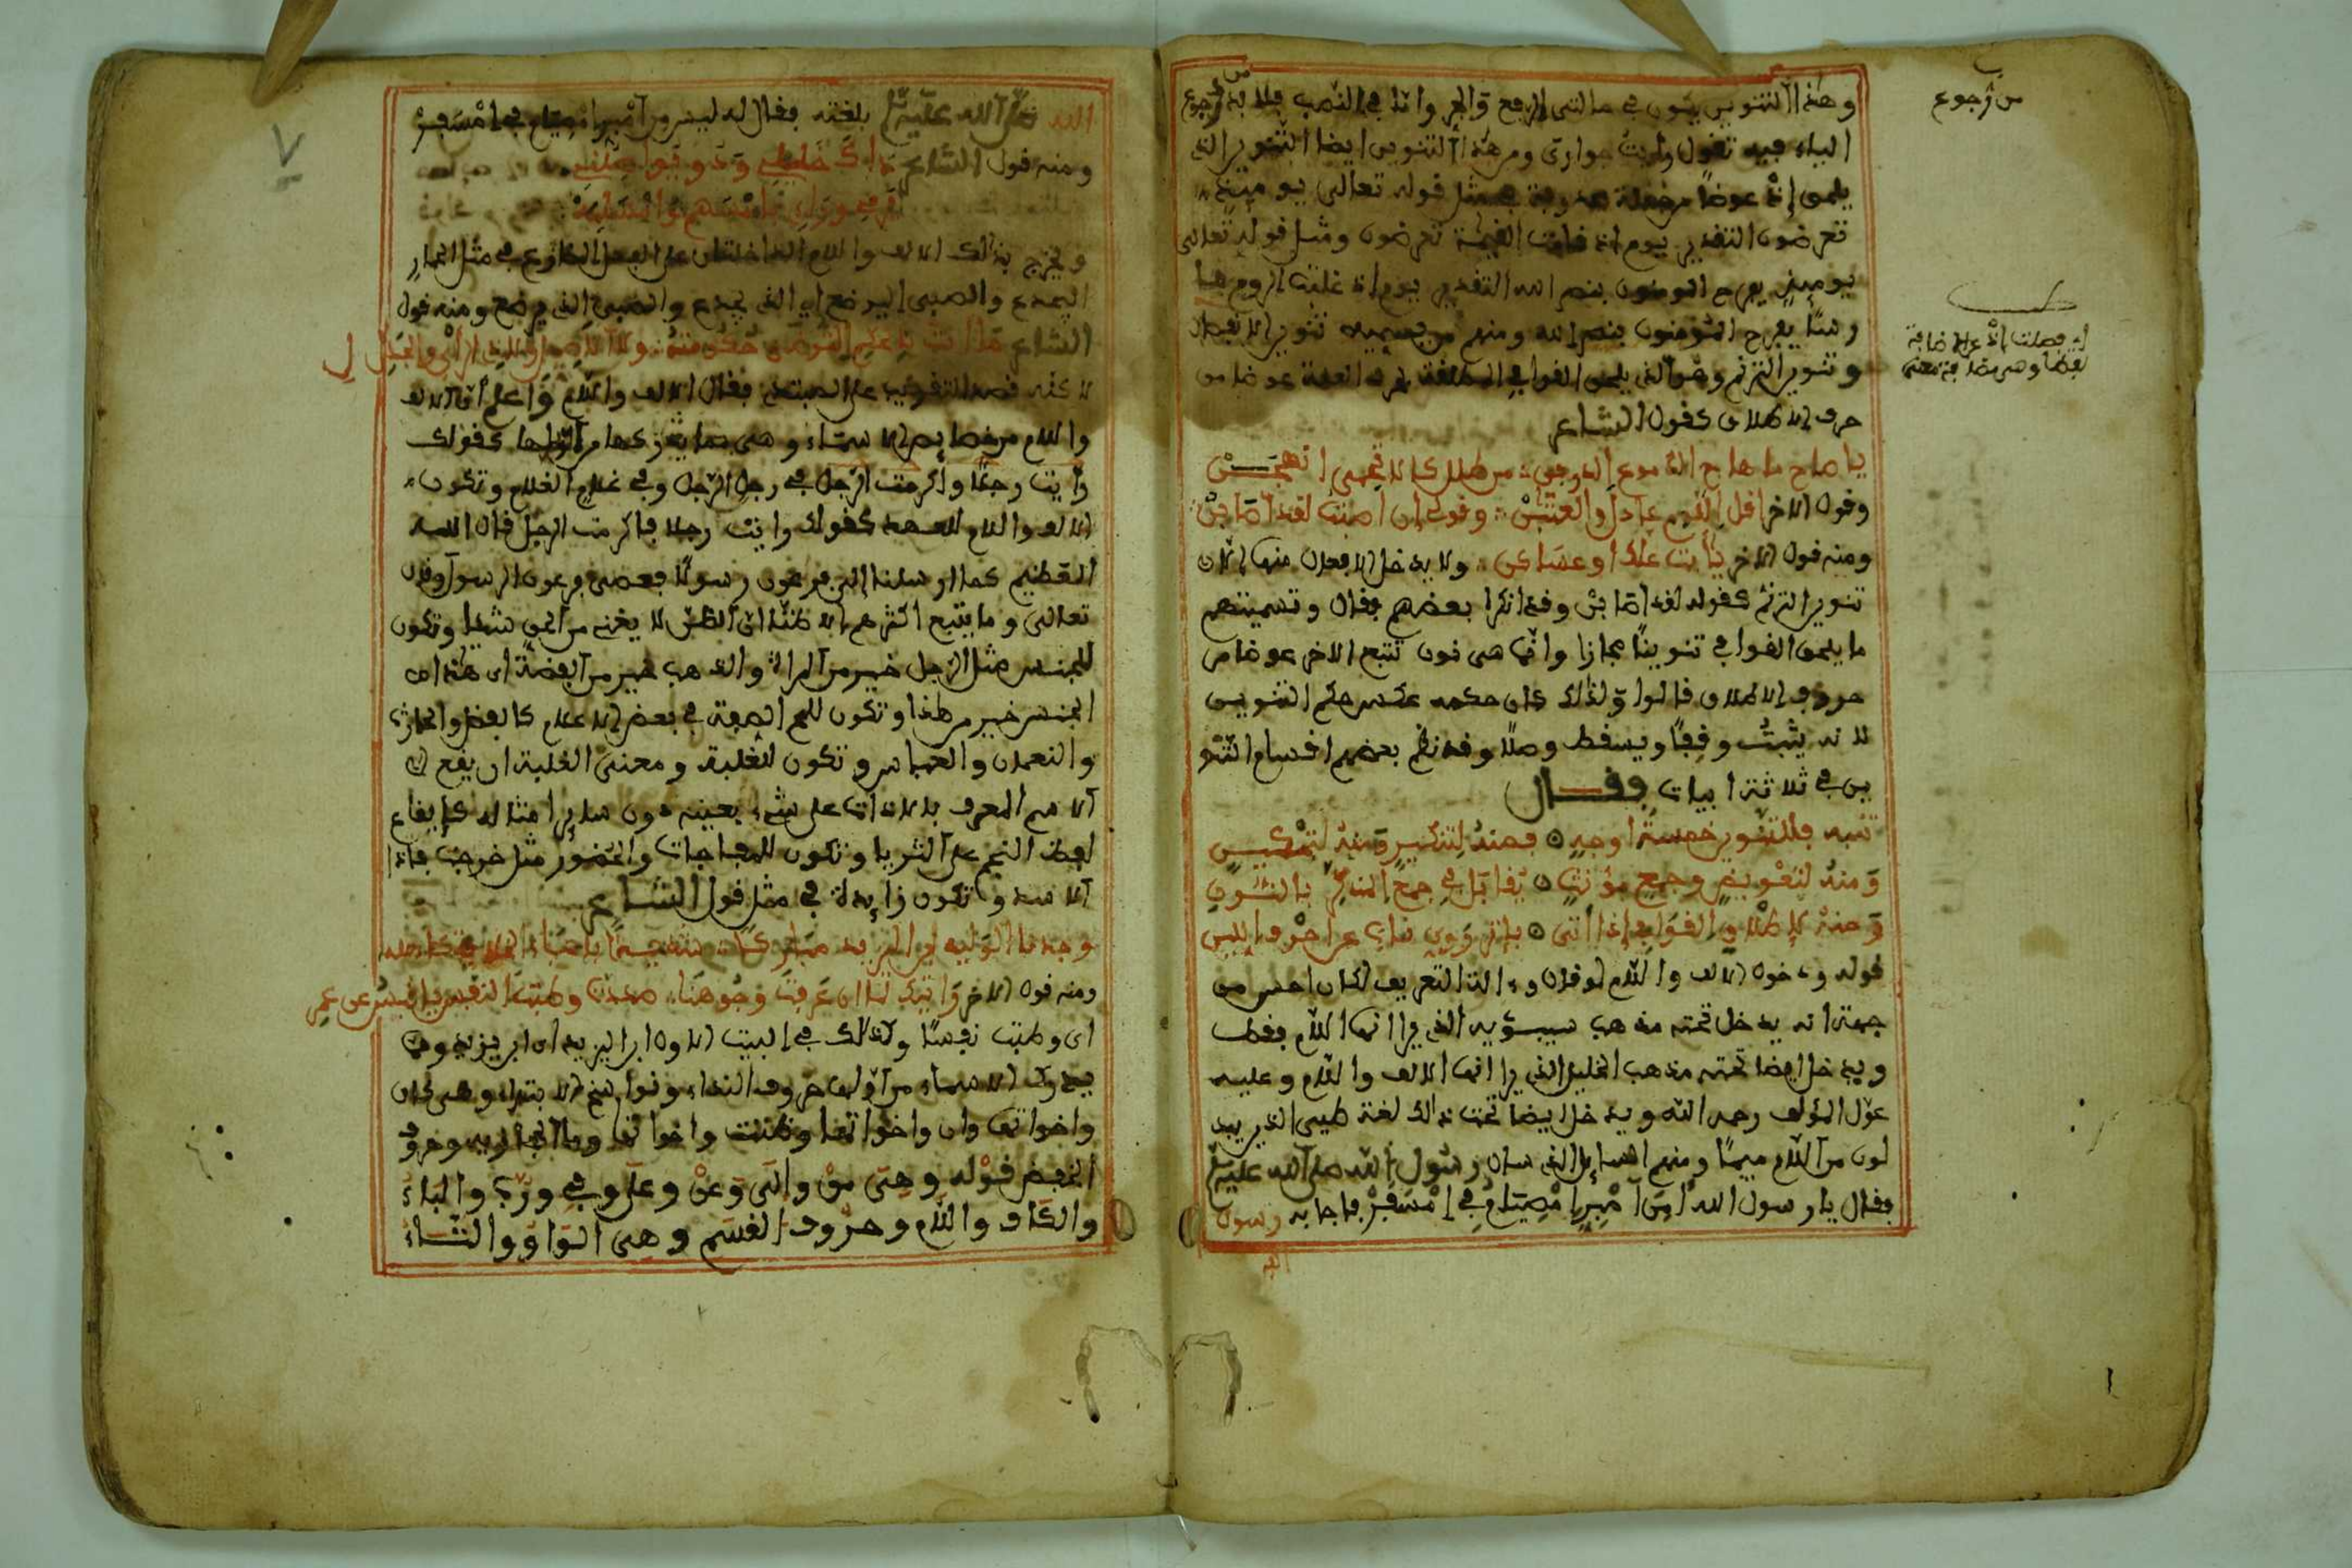 وهذا التنوين يكون في حالتي الرفع والجر واما في النصب فلا بد من رجوع
الياء فيه تقول رايت جواري ومن هذا التنوين ايضا التنوين الذي
يلحق إذ عوضا من جملة محذوفة مثل قوله تعالى يومئذ
تعرضون التقدير يوم اذ قامت القيمة تعرضون ومثل قوله تعالى
يومئذ يفرح المومنون بنصر الله التقدير يوم إذ غلبت الروم
يفرح المؤمنون بنصر الله ومنهم من يسميه تنوين الانفصال
وتنوين الترنم وهو الذي يلحق القوافي المطلقة عوضا من
حرف الاطلاق كقول الشاعر
يا صاح ما هاج الدموع الذرفن من طلل كالاتحمي انهجن
وقول الاخر اقلي اللوم عاذل والعتابن وقولي ان اصبت لقد اصابن
ومنه قول الاخر يا أبت علك او عساكن ولا يدخل الافعال منها الا
تنوين الترنم كقوله لقد اصابن وقد انكرا بعضهم فقال وتسميتهم
ما يلحق القوافي تنوينا مجازا وانما هي نون تتبع الاخر عوضا من
حروف الاطلاق قالوا ولذلك كان حكمه عكس حكم التنوين
لانه يثبت وقفا ويسقط وصلا وقد نظم بعضهم اقسام التنو
ين في ثلاثة ابيات فقال
تنبه فللتنوين خمسة اوجه فمنه لتنكير ومنه لتمكين
ومنه لتعويض وجمع مؤنث يقابل في جمع المذكر بالنون
ومنه لإطلاق القوافي إذا أتى بإثر روي ناب عن احرف اللين
قوله ودخول الالف واللام لو قال وءالت التعريف لكان احسن من
جهة انه يدخل تحته مذهب سيبويه الذي يرا انها اللام فقط
ويدخل ايضا تحته مذهب الخليل الذي يرا انها الالف واللام وعليه
عول المؤلف رحمه الله ويدخل ايضا تحت ذالك لغة طيئ الذين يبد
لون من اللام ميما ومنهم السائل الذي سال رسول الله صلى الله عليه
فقال يا رسول الله أمن امبر امصيام في امسفر فاجابه رسول
الله
من رجوع
أي فصلت إذ عن الاضافة
لفظا وهي مضافة معنى
الله صلى الله عليه بلغته فقال له ليس من امبر امصيام في امسفر
ومنه قول الشاعر ذاك خليلي وذو يواصلني
يرمي وراءي بامسهم وامسلمة
ويخرج بذالك الالف واللام الداخلتان على الفعل المضارع في مثل الحمار
اليجدع والصبي اليرضع اي الذي يجدع والصبي الذي يرضع ومنه قول
الشاعر ما انت بالحكم الترضى حكومته ولا الاصيل ولا ذي الرأي والجدل
لاكنه قصد التقريب على المبتدئ فقال الالف واللام واعلم أن الالف
واللام من خصايص الاسماء وهي مما يتركها من اولها كقولك
رايت رجلا واكرمت الرجل في رجل الرجل وفي غلام الغلام وتكون
الالف واللام للعهد كقولك رايت رجلا فاكرمت الرجل قال الله
العظيم كما ارسلنا إلى فرعون رسولا فعصى فرعون الرسول وقال
تعالى وما يتبع اكثرهم إلا ظنا إن الظن لا يغني من الحق شيئا وتكون
للجنس مثل الرجل خير من المراة والذهب خير من الفضة أي هذا
الجنس خير من هذا وتكون للمح الصفة في بعض الاعلام كالفضل والحارث
والنعمان والعباس وتكون للغلبة ومعنى الغلبة ان يقع
الاسم المعرف بالاداة على شيء بعينه دون ساير امثاله كإيقاع
لفظ النجم على الثريا وتكون للمفاجات والحضور مثل خرجت فاذا
الاسد وتكون زايدة في مثل قول الشاعر
وجدنا الوليد بن اليزيد مباركا شديدا باعباء الخلافة كاهله
ومنه قول الاخر رايتك لما ان عرفت وجوهنا صددت وطبت النفس يا قيس عن عمرو
اي وطبت نفسا وكذالك في البيت الاول ابن اليزيد اي ابن يزيد
الاسماء من اولها حروف النداء ونواسخ الابتداء وهي كان
واخواتها وان واخواتها وظننت واخواتها وما الحجازية وحروف
الخفض قوله وهي من وإلى وعن وعلى وفي ورب والباء
والكاف واللام وحروف القسم وهي الواو والتاء